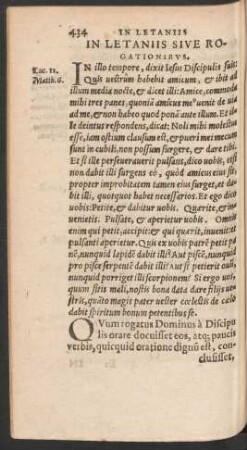 434 IN LETANIIS
IN LETANIIS SIVE RO-
GATIONIBVS.
Luc. 11.
Matth. 6.
IN illo tempore, dixit Iesus Discipulis suis:
Quis vestrûm habebit amicum, & ibit ad
illum media nocte, & dicet illi: Amice, commoda
mihi tres panes, quoniã amicus meꝰ venit de uia
ad me, & non habeo quod ponã ante illum. Et il
le deintus respondens, dicat: Noli mihi molestus
esse, iam ostium clausum est, & pueri mei mecum
sunt in cubili, non possum surgere, & dare tibi.
Et si ille perseuerauerit pulsans, dico vobis, etsi
non dabit illi surgens eò, quòd amicus eius sit,
propter improbitatem tamen eius surget, et da-
bit illi, quotquot habet necessarios. Et ego dico
vobis: Petite, & dabitur vobis. Quærite, & in-
uenietis. Pulsate, & aperietur uobis. Omnis
enim qui petit, accipit: & qui quærit, inuenit: et
pulsanti aperietur. Quis ex uobis patrē petit pa
nē, nunquid lapidē dabit illi? Aut piscē, nunquid
pro pisce serpentē dabit illi? Aut si petierit ouũ,
nunquid porriget illi scorpionem? Si ergo uos,
quum sitis mali, nostis bona data dare filijs ue-
stris, quãto magis pater uester cœlestis de cœlo
dabit spiritum bonum petentibus se.
QVum rogatus Dominus à Discipu
lis orare docuisset eos, atq; paucis
verbis, quicquid oratione dignũ est, con-
clusisset,